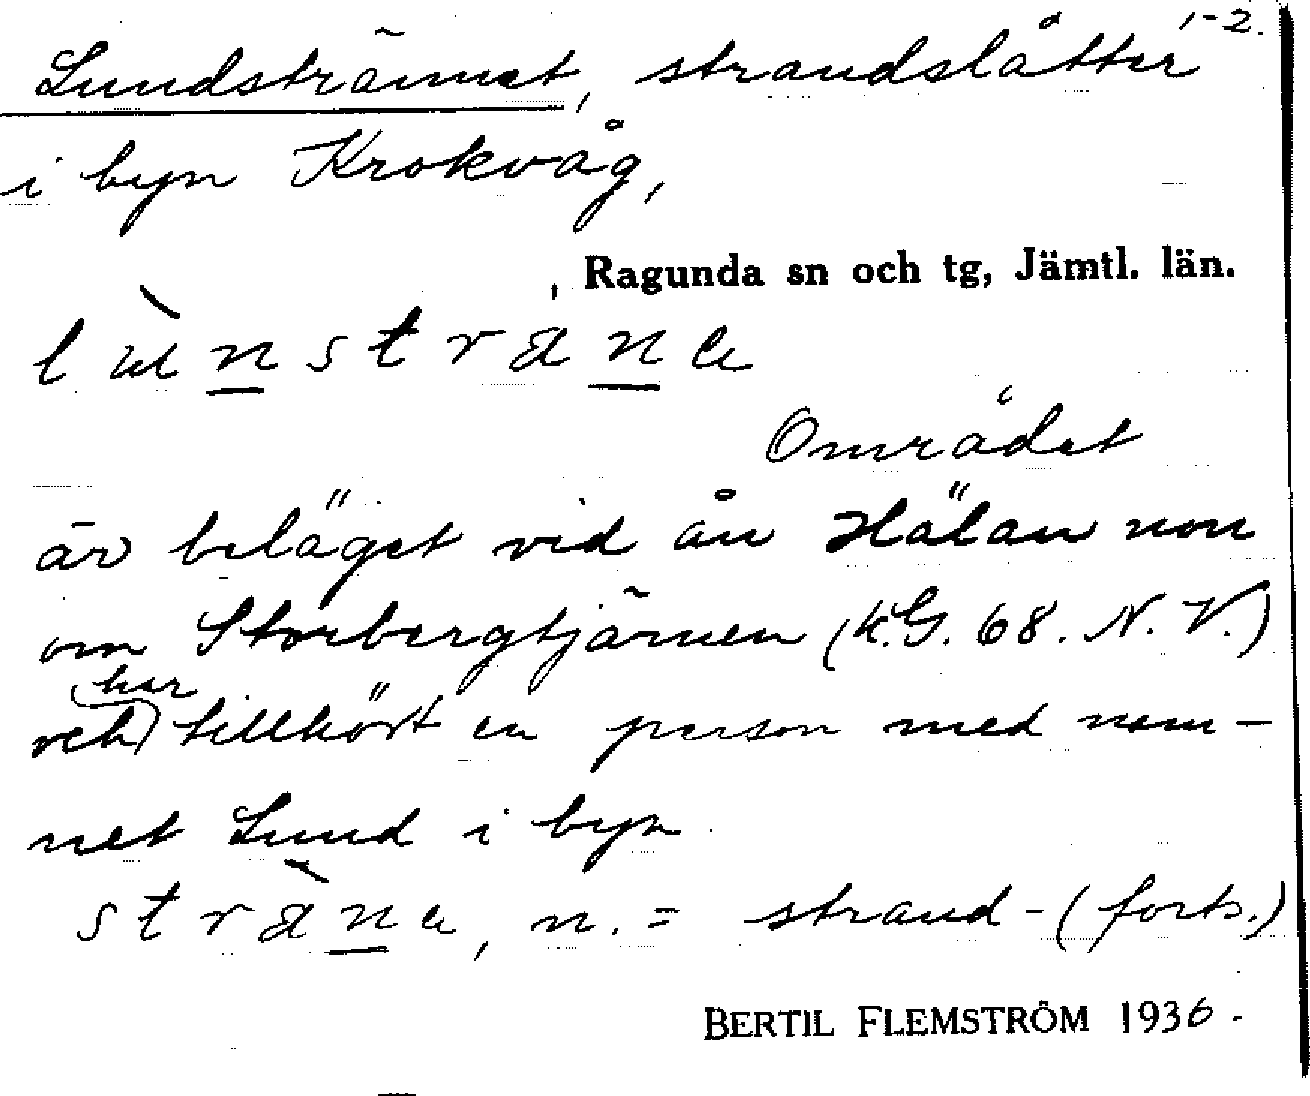 1-2.
Lundsträmet, strandslåtter
i byn Krokvåg,
, Ragunda sn och tg, Jämtl. län.
Området
är beläget vid ån Hälan non
om Storbergtjärnen (k.G. 68. N.V.)
och har tillhört en person med nam-
net Lund i byn
n. = strand - (forts.)
BERTIL FLEMSTRÖM 1936.